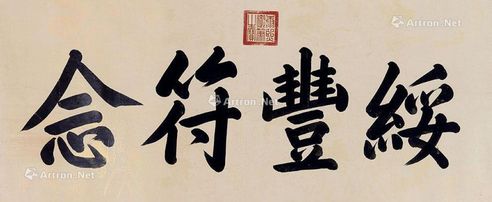 綏豐符念
Artron.Net
Artron.Net
Artron.Net